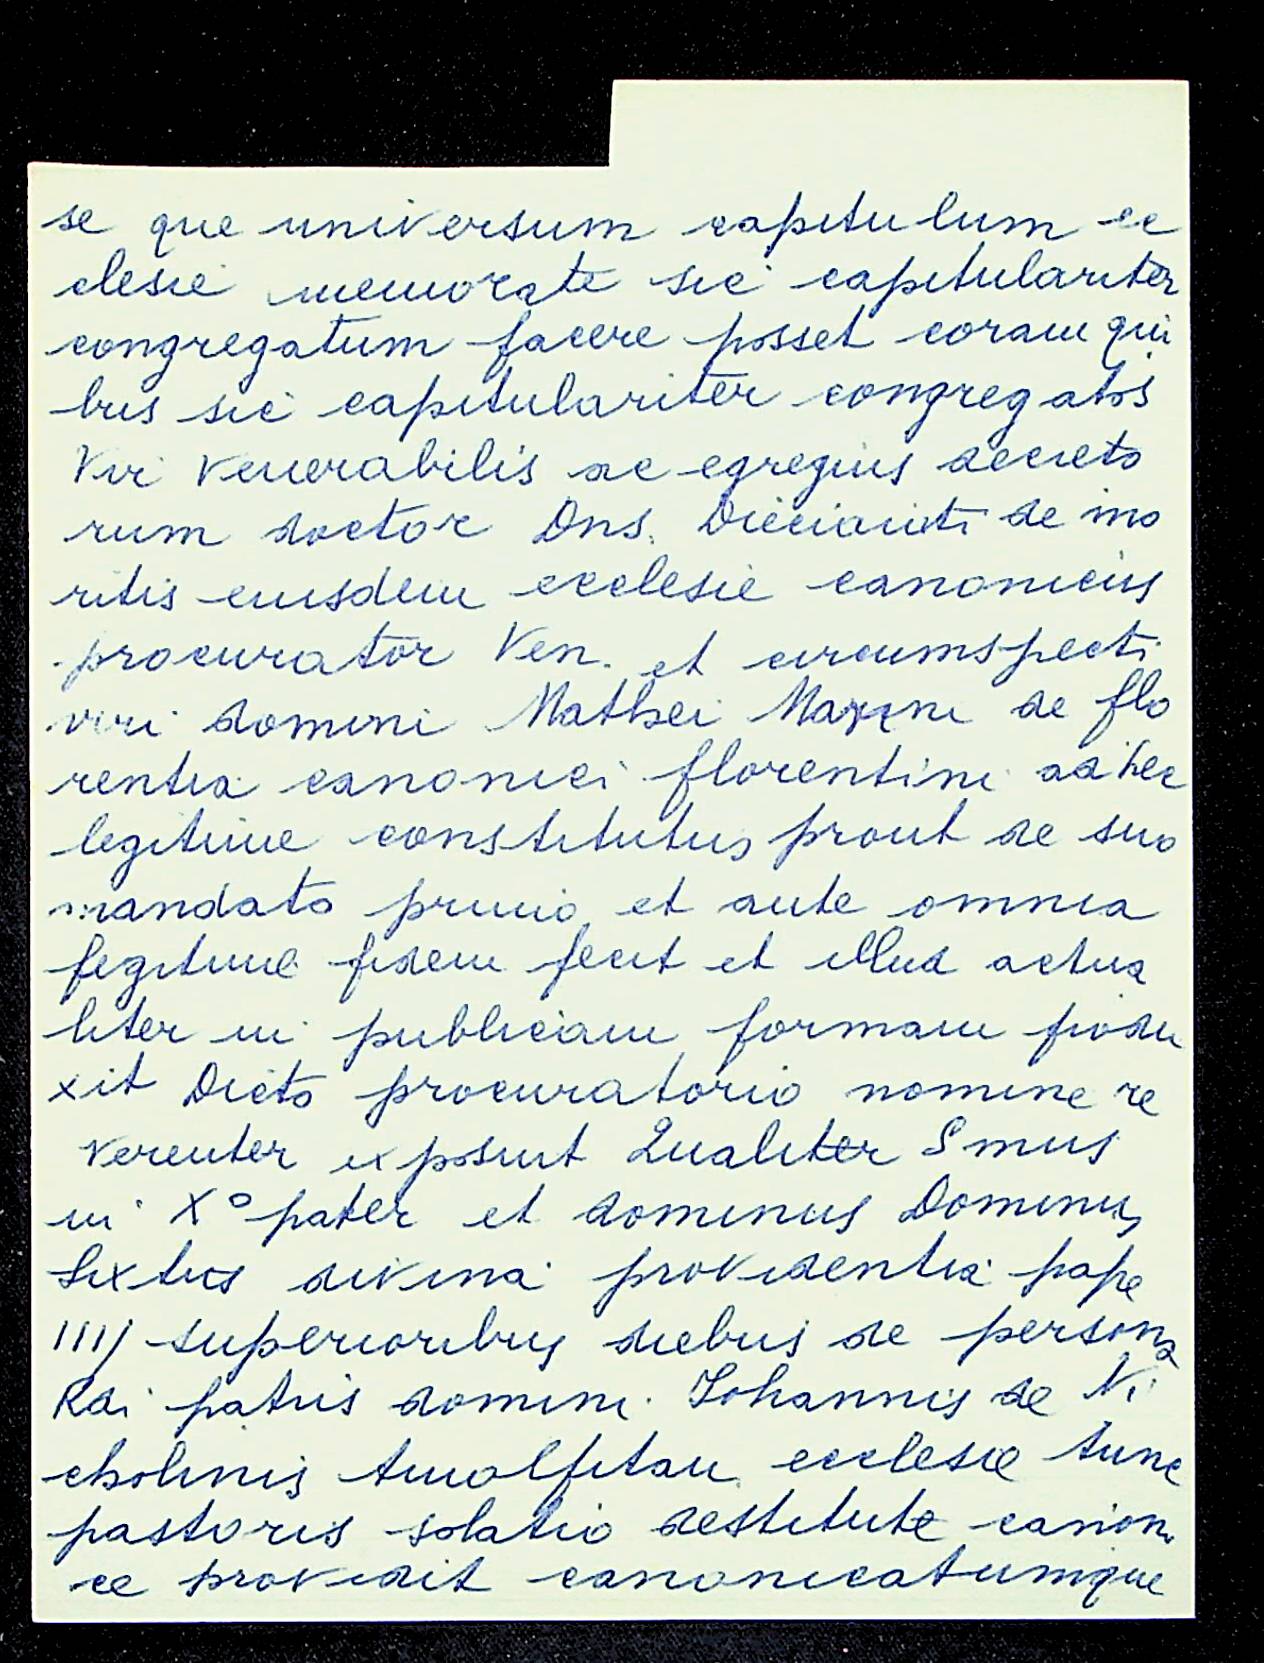 se que universum capitulum ec
clesie memorate sic capitulariter
congregatum facere posset coram qui
bus sic capitulariter congregatis
Vir Venerabilis ac egregius decreto
rum doctor Dns. de mo
ritis eiusdem ecclesie canonicus
procurator Ven. et circumspecti
viri domini Mathei de flo
rentia canonici florentini ad hec
legitime constitutus prout de suo
mandato primo et ante omnia
legitime fidem fecit et illud actua
liter in publicam formam produ
xit Dicto procuratorio nomine re
verenter exposuit Qualiter Smus
in Xº pater et dominus Dominus
Sixtus divina providentia pape
IIIJ superioribus diebus de persona
Rdi patris domini Johannis de Ni
cholinis Amalfitan ecclesie tunc
pastoris solatio destitute canoni
ce providit canonicatumque